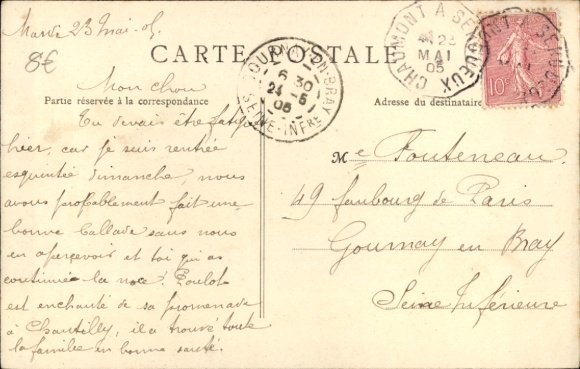 Mardi 23 Mai. 05
8€
CARTE POSTALE
CHAUMONT A SENQUEUX
23
MAI
05
GOURNAY-EN-BRAY
6 30
24 -5
05
SEINE-INFRE
10c
Mon chou
Partie réservée à la correspondance
Adresse du destinataire
Tu devais être fatigué
hier, car je suis rentrée
esquintée dimanche, nous
avons probablement fait une
bonne ballade sans nous
en apercevoir et toi qui as
continué la noce! Loulot
est enchanté de sa promenade
à Chantilly, il a trouvé toute
la famille en bonne santé.
Me Fouteneau
49 faubourg de Paris
Gournay en Bray
Seine Inférieure